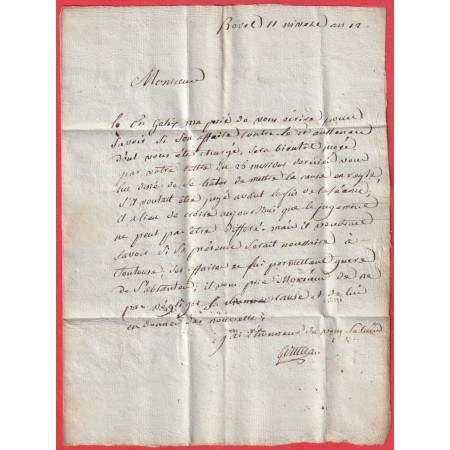 Revel 11 nivose an 12
Monsieur
le Cn ma prié de vous écrire pour
savoir si son affaire contre le
dont vous êtes chargé, sera bientôt jugée
par votre lettre du 26 messidor dernier vous
lui de se de mettre la cause en
s'il voulait être jugé avant la fin de la séance,
il a lieu de croire aujourd'hui que le jugement
ne peut pas être différé, mais il voudrait
savoir si sa présence serait nécessaire à
Toulouse, ses affaires ne lui permettant guere
de s'absenter; il vous prie Monsieur de ne
pas négliger sa cause et de lui
en donner des nouvelles;
j'ai l'honneur de vous saluer